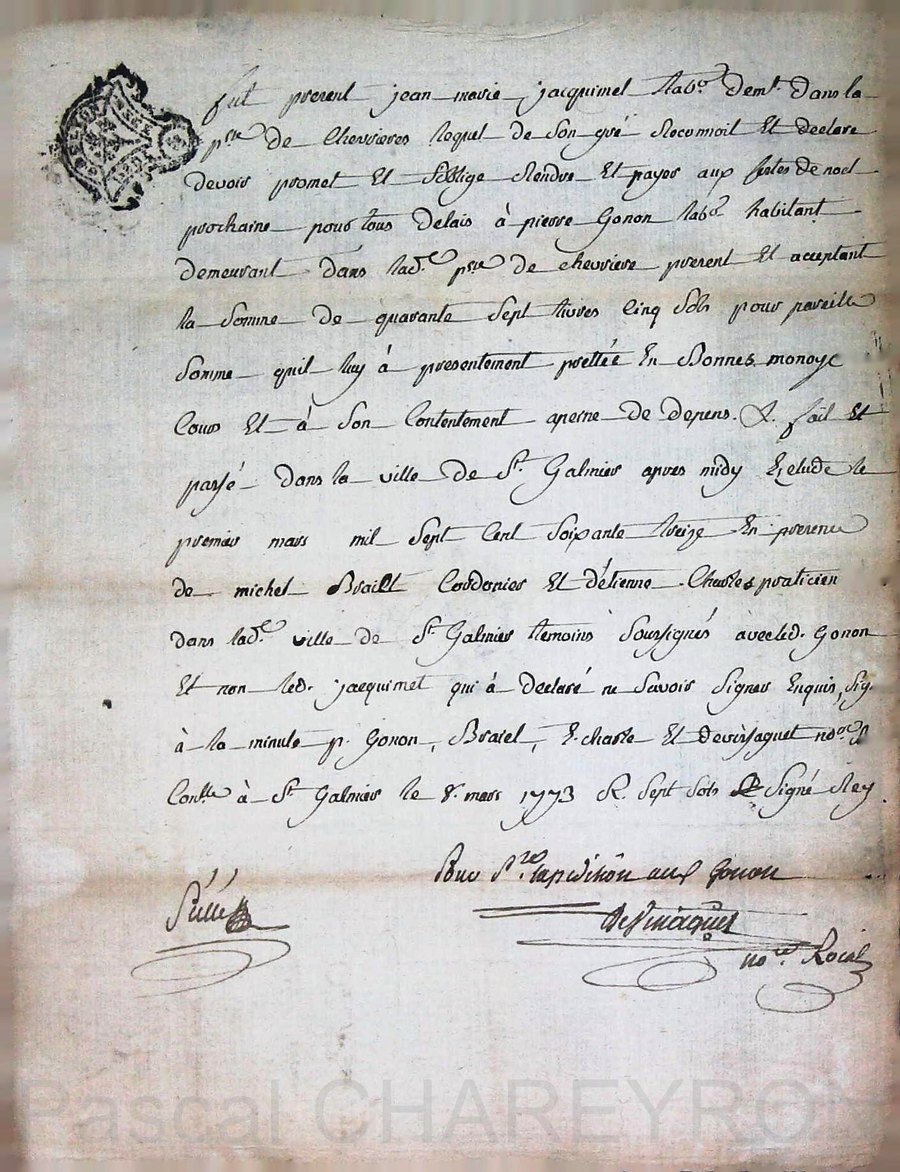 fut present jean marie jacquimet lab.r dem.t dans la
p.sse de Chevrieres lequel de son gré Reconnoit Et declare
devoir promet Et s'oblige Rendre Et payer aux fêtes de noel
prochaine pour tous delais à pierre Gonon lab.r habitant
demeurant dans lad.e p.sse de chevriere present Et acceptant
la somme de quarante sept livres Cinq sols pour pareille
somme quil luy à presentement prettée En Bonnes monoye
Cours Et à son Contentement apeine de depens. &. fait Et
passé dans la ville de S.t Galmier apres midy Etude le
premier mars mil sept Cent soixante treize En presence
de michel Cordonier Et d'étienne Charles praticien
dans lad.e ville de S.t Galmier temoins soussignés avec led. Gonon
Et non led. jacquimet qui à declaré ne savoir signer Enquis, sig.
à la minute p. Gonon, Et no.re
Con.lle à S.t Galmier le 8. mars 1773 R. sept sols signé Rey
Pour Expedition aud Gonon
Scellé
no.re Roial
Pascal CHAREYRON